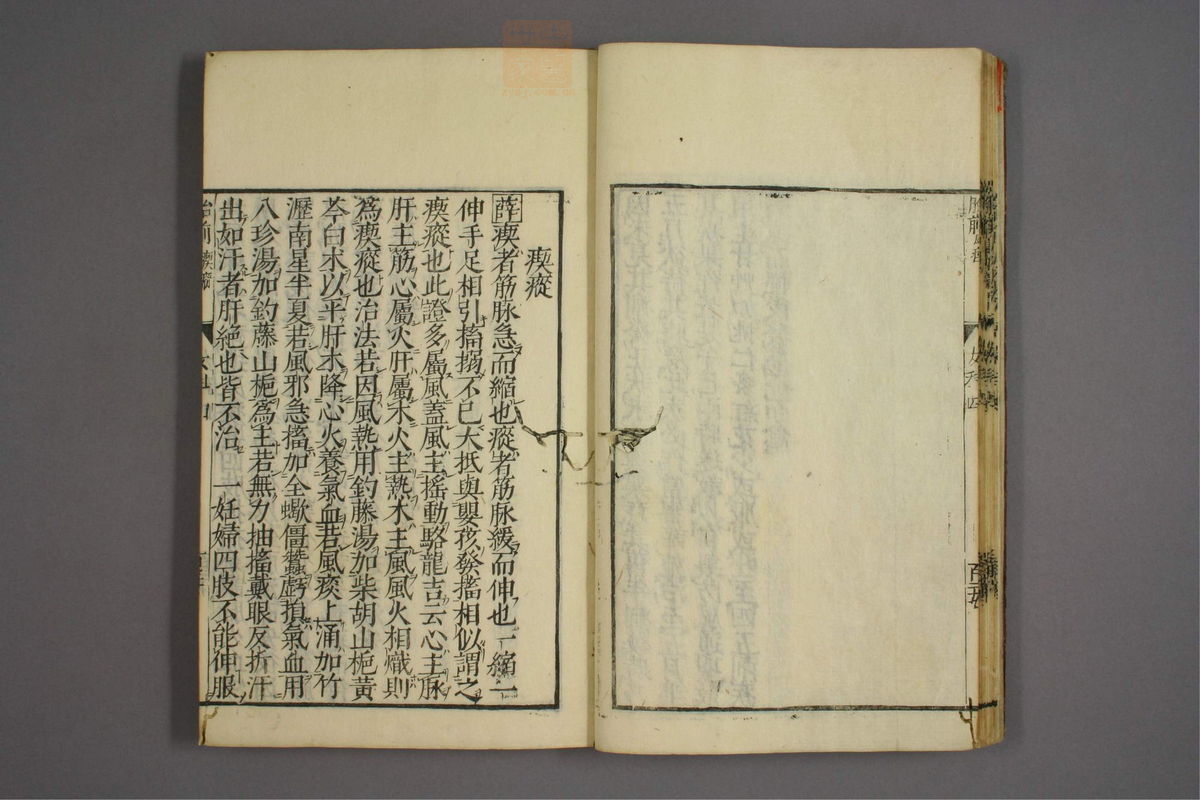 瘈瘲
薛瘈者筋脉急而縮也瘲者筋脉緩而伸也一縮一
伸手足相引搐搦不已大抵與嬰孩發搐相似謂之
瘈瘲也此證多屬風蓋風主搖動駱龍吉云心主脉
肝主筋心屬火肝屬木火主熱木主風風火相熾則
為瘈瘲也治法若因風熱用釣藤湯加柴胡山梔黃
芩白朮以平肝木降心火養氣血若風痰上涌加竹
瀝南星半夏若風邪急搐加全蠍僵蠶虧損氣血用
八珍湯加釣藤山梔為主若無力抽搐戴眼反折汗
出如汗者肝絕也皆不治 一妊婦四肢不能伸服